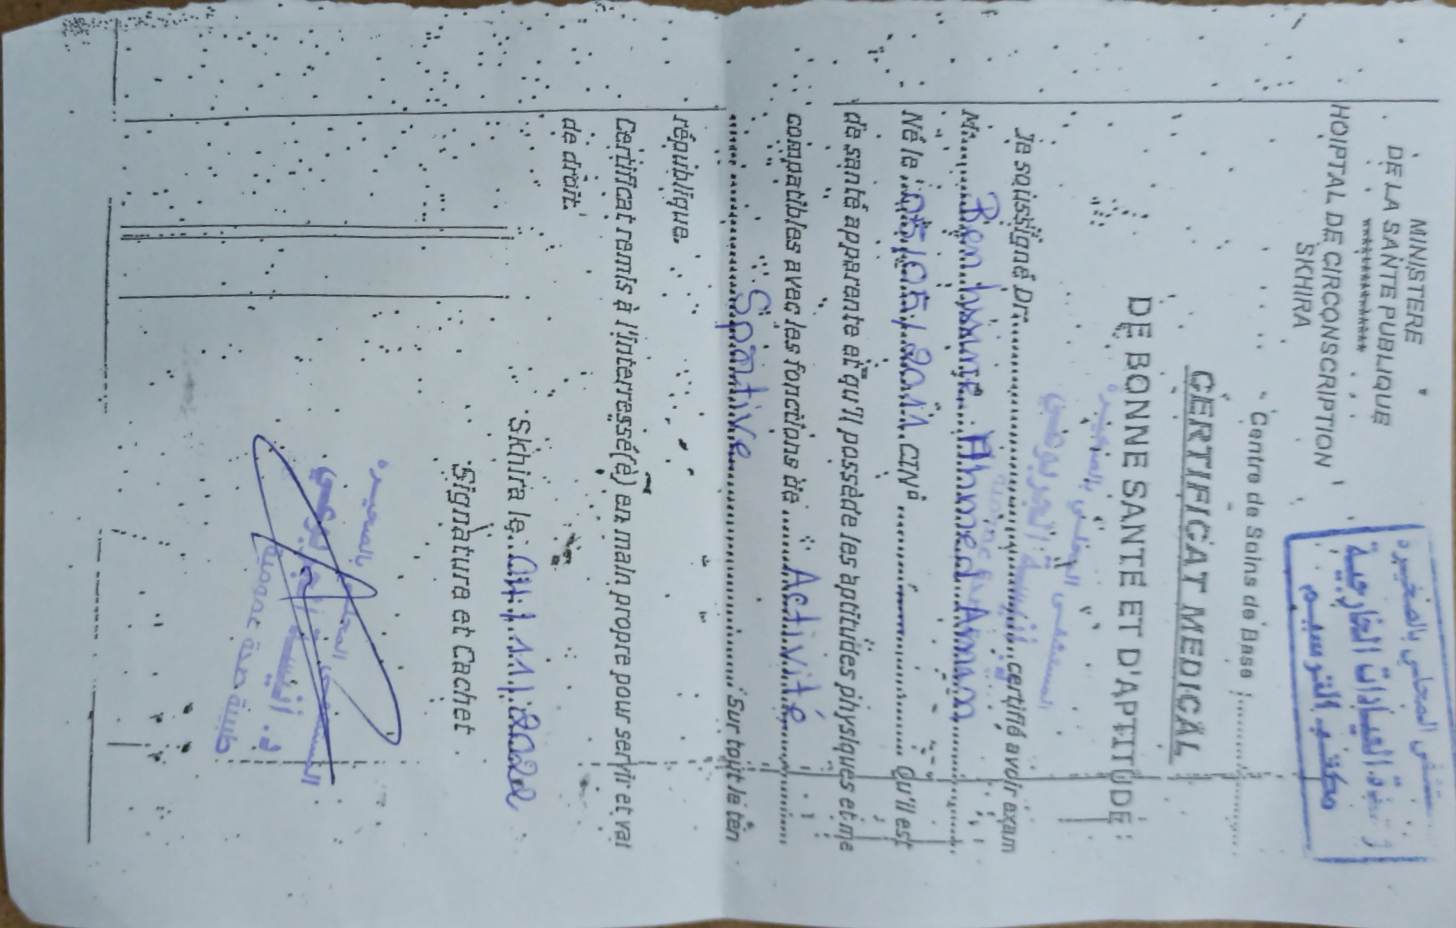 MINISTERE
DE LA SANTE PUBLIQUE
**************
HOIPTAL DE CIRCONSCRIPTION
SKHIRA
المستشفى المحلي بالصخيرة
العيادات الخارجية
مكتب الترسيم
Centre de Soins de Base :..........
CERTIFICAT MEDICAL
DE BONNE SANTE ET D'APTITUDE :
المستشفى المحلي بالصخيرة
Je soussigné Dr:.......... certifié avoir exam
M:..... Ben ..... Ahmed Aman .....
Né le : 05/05/2011 CIN° .......... Qu'il est
de santé apparente et qu'il possède les aptitudes physiques et me
compatibles avec les fonctions de ..... Activité .....
..... Sportive ..... Sur tout le terr
république.
Certificat remis à l'interressé(è) en main propre pour servir et val
de droit.
Skhira le: 04/11/2022
Signatura et Cachet
المستشفى المحلي بالصخيرة
طبيبة صحة عمومية